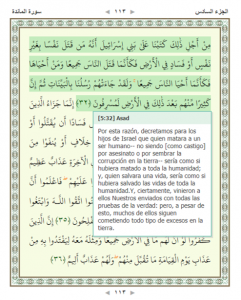 الجزء السادس ١١٣ سورة المائدة
مِنْ أَجْلِ ذَٰلِكَ كَتَبْنَا عَلَىٰ بَنِي إِسْرَائِيلَ أَنَّهُ مَن قَتَلَ نَفْسًا بِغَيْرِ
نَفْسٍ أَوْ فَسَادٍ فِي الْأَرْضِ فَكَأَنَّمَا قَتَلَ النَّاسَ جَمِيعًا وَمَنْ أَحْيَاهَا
فَكَأَنَّمَا أَحْيَا النَّاسَ جَمِيعًا وَلَقَدْ جَاءَتْهُمْ رُسُلُنَا بِالْبَيِّنَاتِ ثُمَّ إِنَّ
كَثِيرًا مِّنْهُم بَعْدَ ذَٰلِكَ فِي الْأَرْضِ لَمُسْرِفُونَ (٣٢) إِنَّمَا جَزَاءُ الَّذِينَ
فَسَادًا أَن يُقَتَّلُوا أَوْ
[5:32] Asad
Por esta razón, decretamos para los
hijos de Israel que quien matara a un
ser humano-- no siendo [como castigo]
por asesinato o por sembrar la
corrupción en la tierra-- sería como si
hubiera matado a toda la humanidad;
y, quien salvara una vida, sería como si
hubiera salvado las vidas de toda la
humanidad.Y, ciertamente, vinieron a
ellos Nuestros enviados con todas las
pruebas de la verdad: pero, a pesar de
esto, muchos de ellos siguen
cometiendo todo tipo de excesos en la
tierra.
كَفَرُوا لَوْ أَنَّ لَهُم مَّا فِي الْأَرْضِ جَمِيعًا وَمِثْلَهُ مَعَهُ لِيَفْتَدُوا بِهِ مِنْ
عَذَابِ يَوْمِ الْقِيَامَةِ مَا تُقُبِّلَ مِنْهُمْ وَلَهُمْ عَذَابٌ أَلِيمٌ (٣٦)
١١٣